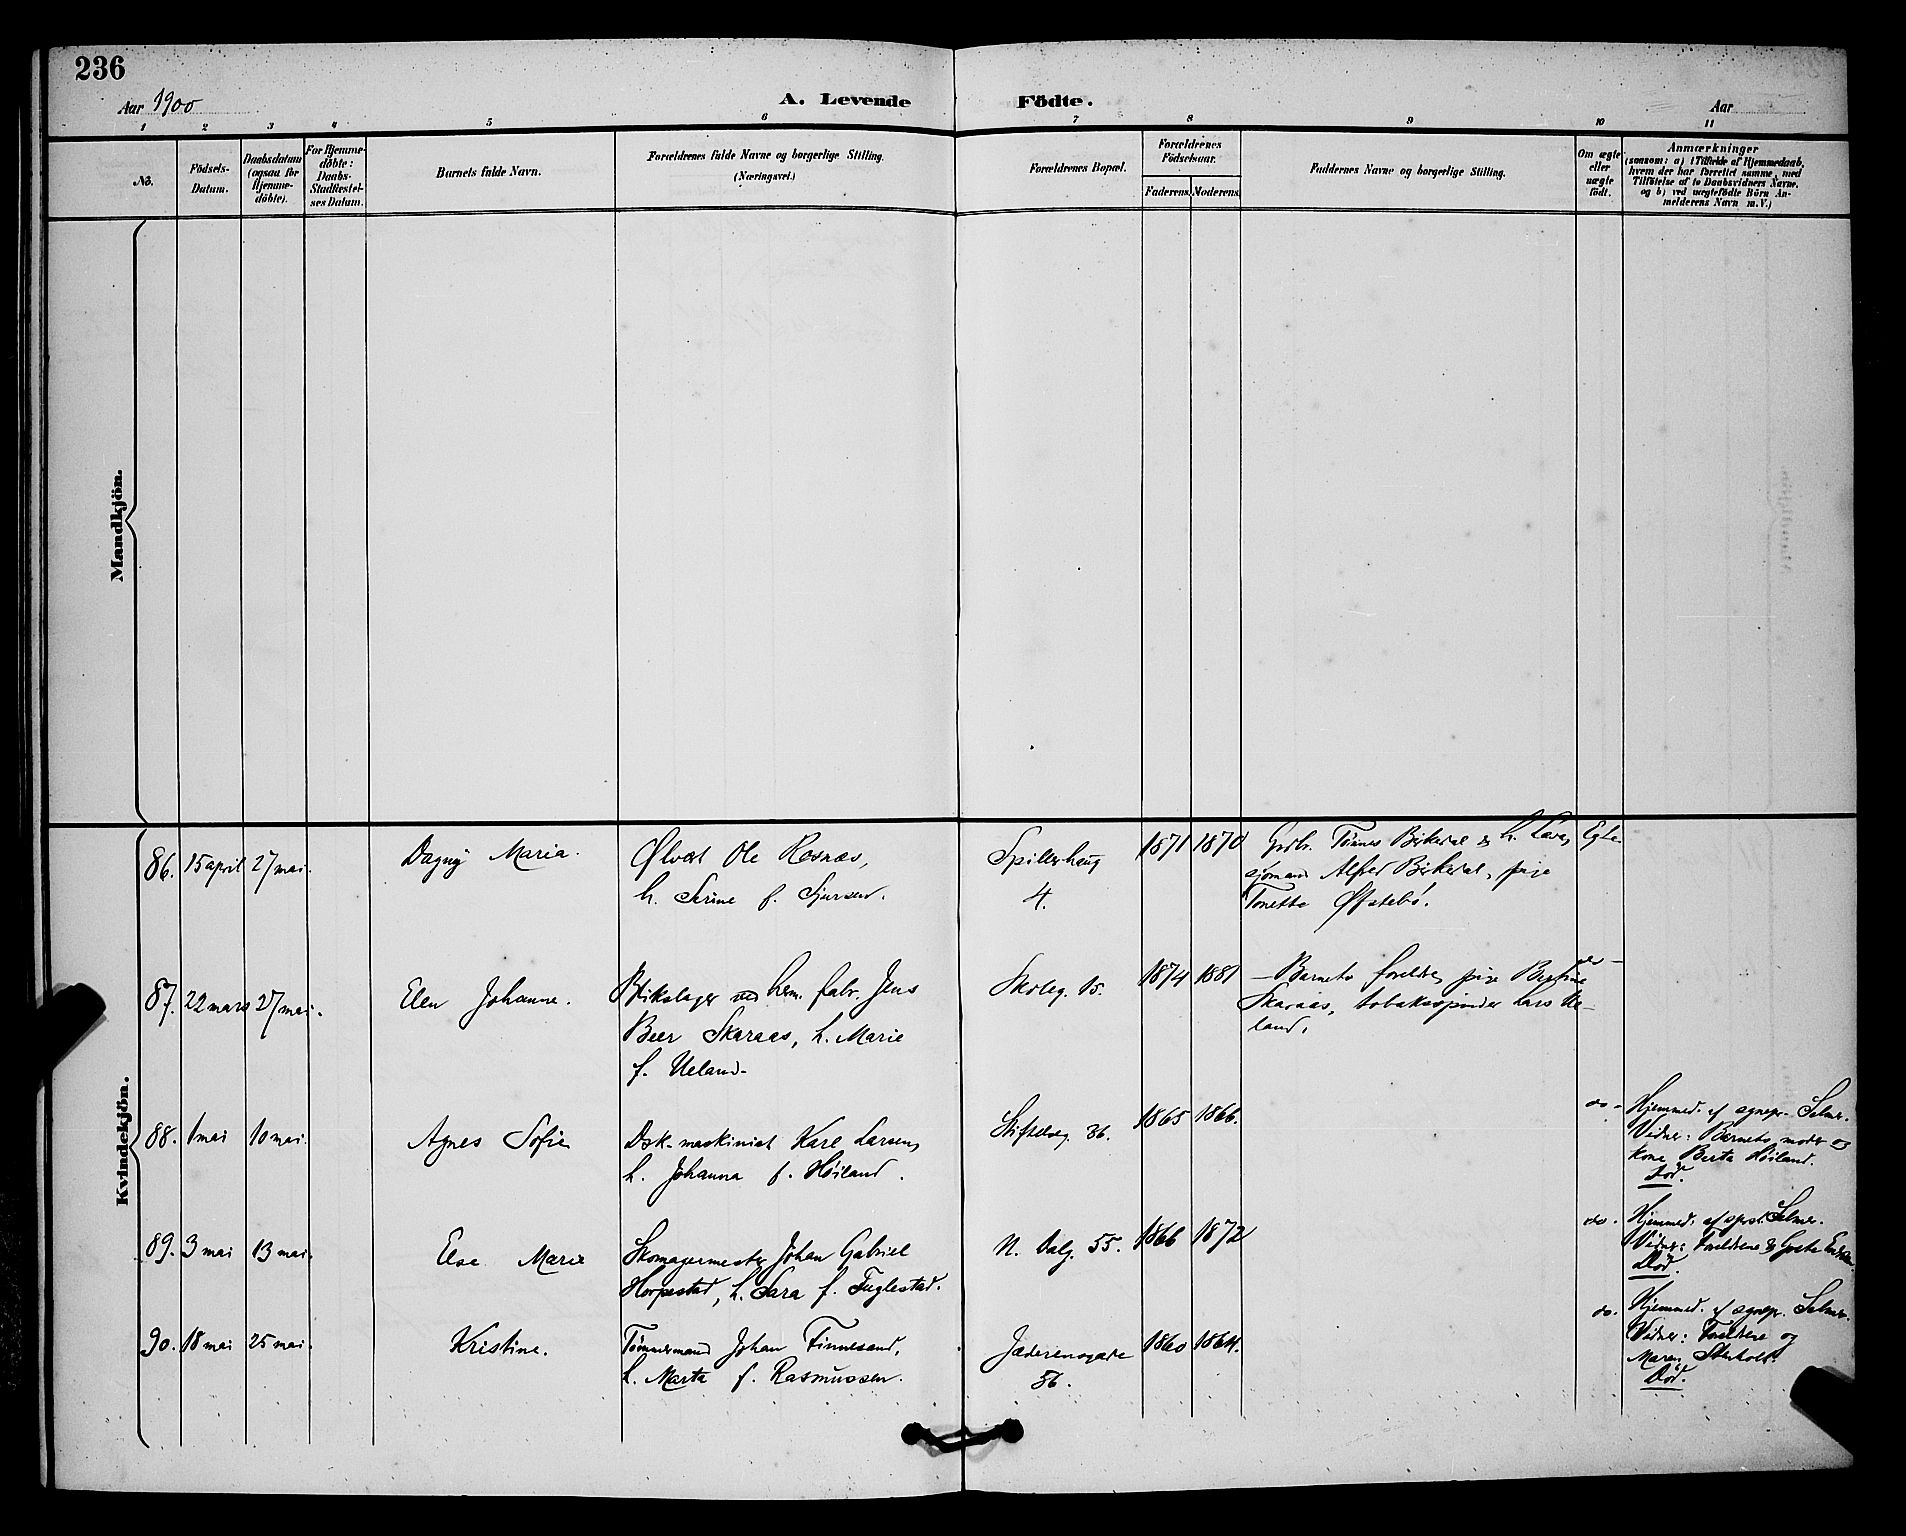 236
Aar 1900
A. Levende Födte.
Aar
1 2 3 4 5 6 7 8 9 10 11
No.
Födsels-
Datum.
Daabsdatum
(ogsaa for
Hjemme-
döbte).
For Hjemme-
döbte:
Daabs-
Stadfestel-
ses Datum.
Barnets fulde Navn.
Forældrenes fulde Navne og borgerlige Stilling.
(Næringsvei.)
Forældrenes Bopæl.
Forældrenes
Födselsaar.
Faderens. Moderens.
Faddernes Navne og borgerlige Stilling.
Om ægte
eller
uægte
født.
Anmærkninger
(saasom: a) i Tilfælde af Hjemmedaab,
hvem der har forrettet samme, med
Tilföielse af to Daabsvidners Navne.
og b) ved uægtefödte Börn An-
melderens Navn m.V.)
Mandkjön.
Kvindekjön.
86. 15 april 27 mai.
Dagny Maria.
Ole Rosnæs,
h. Serine f. Sjursen.
Spillerhaug
4.
1871 1870
Tønnes Birkedal & h. Lava,
sjømand Alfred Birkedal, pige
Tonette Øfstebø.
Egte
87. 22 mars 27 mai.
Elen Johanne.
Blikslager ved herm. fabr. Jens
Beer Skaraas, h. Marie
f. Ueland.
Skoleg. 15.
1874 1881
Barnets foreldre, pige
Skaraas, tobakspinder Lars Ue-
land.
do -
88. 1 mai 10 mai.
Agnes Sofie
Dsk. maskinist Karl Larsen,
h. Johanna f. Höiland.
Stiftelseg. 36.
1865 1866.
do -
Hjemmed. af sognepr. Selmer.
Vidner: Barnets moder og
kone Berta Höiland.
Död.
89. 3 mai 13 mai.
Else Marie
Skomagermester Johan Gabriel
Horpestad, h. Sara f. Fuglestad.
N. Dalg. 55.
1866 1872
do.
Hjemmed. af Selmer.
Vidner: Foreldrene &
Död.
90. 18 mai 25 mai.
Kristine.
Tømmermand Johan Finnesand,
h. Marta f. Rasmussen.
Jæderensgade
56.
1860 1864.
do.
Hjemmed. af sognepr. Selmer.
Vidner: Foreldrene og
Maren
Död.